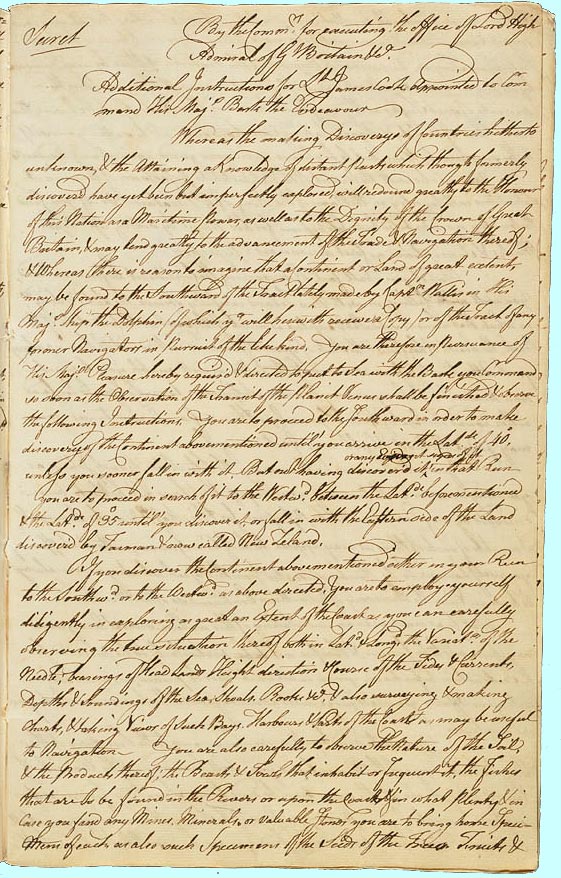 Secret
By the Comm.rs for executing the Office of Lord High
Admiral of Gt Britain &ca.
Additional Instructions for Lt James Cook appointed to Com
mand His Maj.s Bark the Endeavour
Whereas the making Discoverys of Countries hitherto
unknown, & the Attaining a Knowledge of distant Parts which though formerly
discover'd have yet been but imperfectly explored, will redound greatly to the Honour
of this Nation as a Maritime Power, as well as to the Dignity of the Crown of Great
Britain, & may tend greatly to the advancement of the Trade & Navigation thereof;
& Whereas there is reason to imagine that a Continent or Land of great extent,
may be found to the Southward of the Tract lately made by Capt.n Wallis in His
Maj.s Ship the Dolphin (of which you will herewith receive a Copy) or of the Tract of any
former Navigators in Pursuits of the like kind; You are therefore in Pursuance of
His Maj.s Pleasure hereby required & directed to put to Sea with the Bark you Command
so soon as the Observation of the Transit of the Planet Venus shall be finished & observe
the following Instructions. You are to proceed to the Southward in order to make
discovery of the Continent abovementioned until you arrive in the Lat.de of 40.
unless you sooner fall in with it. But not having discover'd it, or any signs of it in that Run
You are to proceed in search of it to the Westw.d between the Lat.de beforementioned
& the Lat.de of 35 until you discover it, or fall in with the Eastern side of the Land
discover'd by Tasman & now called New Zeland.
If you discover the Continent abovementioned either in your Run
to the Southw.d or to the Westw.d as above directed, You are to employ yourself
diligently in exploring as great an Extent of the Coast as you can carefully
observing the true situation thereof both in Lat.de & Long.de the Variat.n of the
Needle; bearings of Head Lands Height direction & Course of the Tides & Currents,
Depths & Soundings of the Sea, Shoals, Rocks &ca. & also surveying & making
Charts, & taking Views of Such Bays, Harbours & Parts of the Coast as may be useful
to Navigation. You are also carefully to observe the Nature of the Soil,
& the Products thereof; the Beasts & Fowls that inhabit or frequent it, the Fishes
that are to be found in the Rivers or upon the Coast & in what Plenty & in
Case you find any Mines, Minerals, or valuable Stones you are to bring home Speci-
mens of each, as also such Specimens of the Seeds of the Trees Fruits &